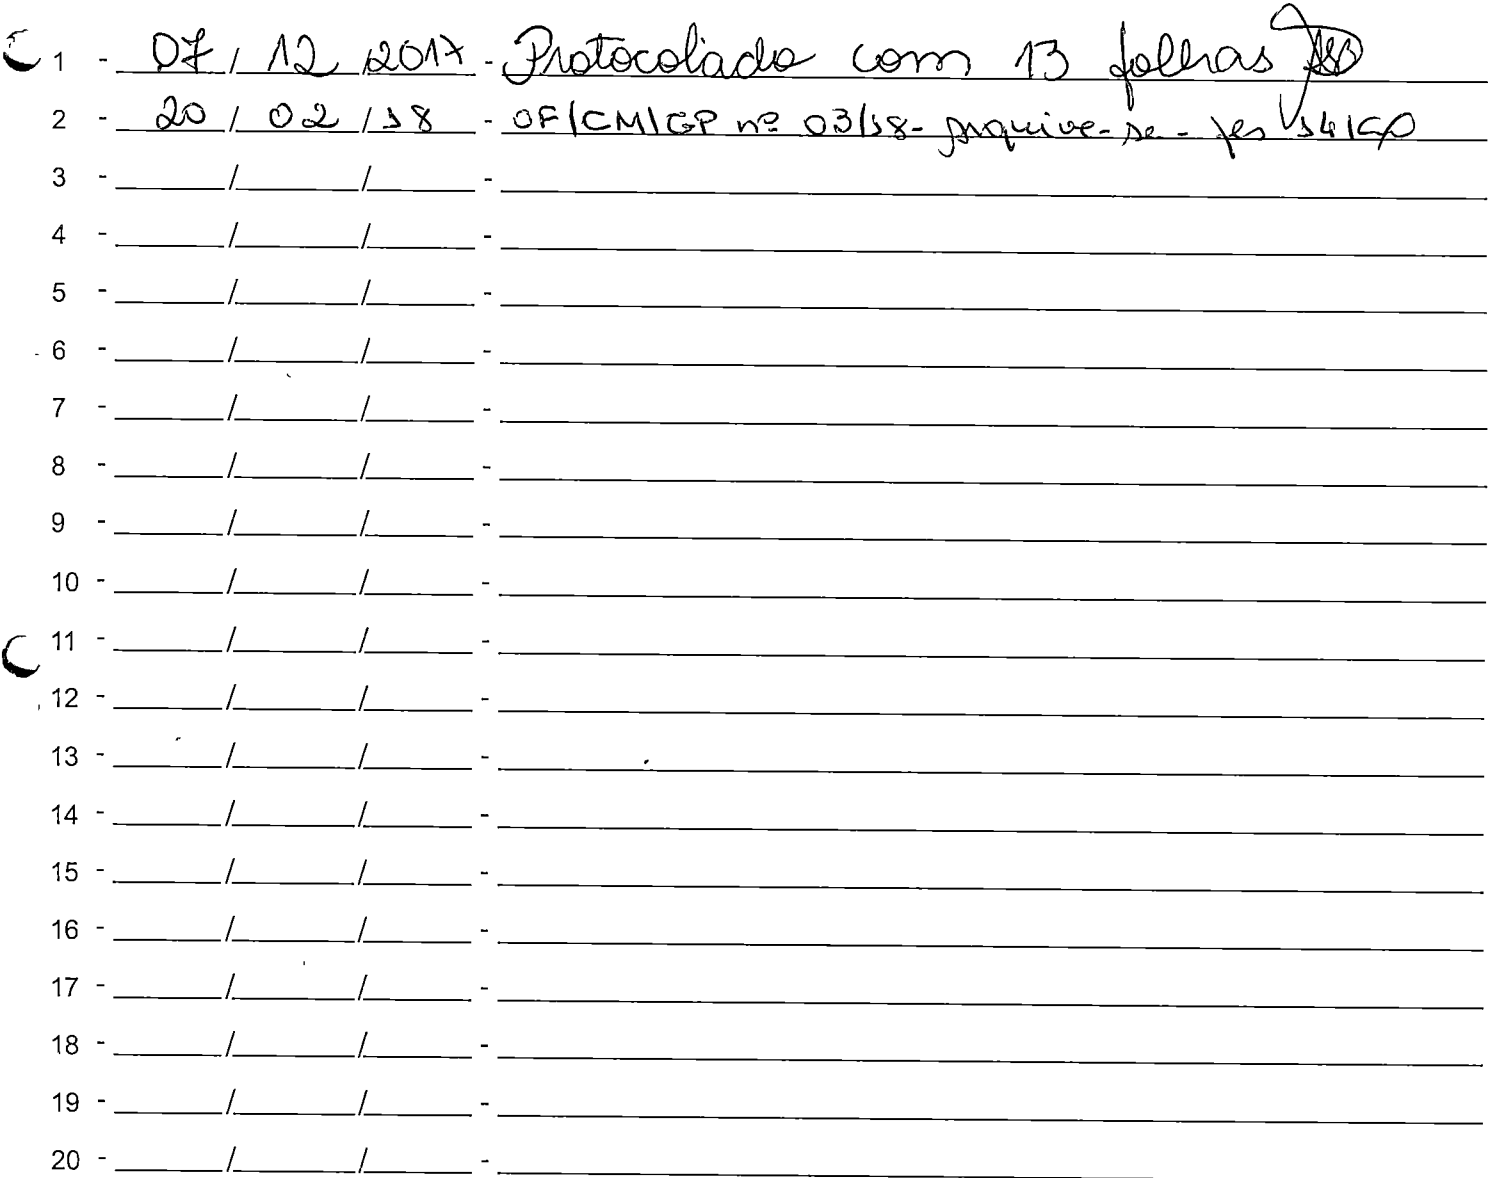 1 - 07 / 12 / 2017 - Protocolado com 13 folhas
2 - 20 / 02 / 18 - OF/CM/GP nº 03/18 - arquive-se -
3 - / / -
4 - / / -
5 - / / -
6 - / / -
7 - / / -
8 - / / -
9 - / / -
10 - / / -
11 - / / -
12 - / / -
13 - / / -
14 - / / -
15 - / / -
16 - / / -
17 - / / -
18 - / / -
19 - / / -
20 - / / -